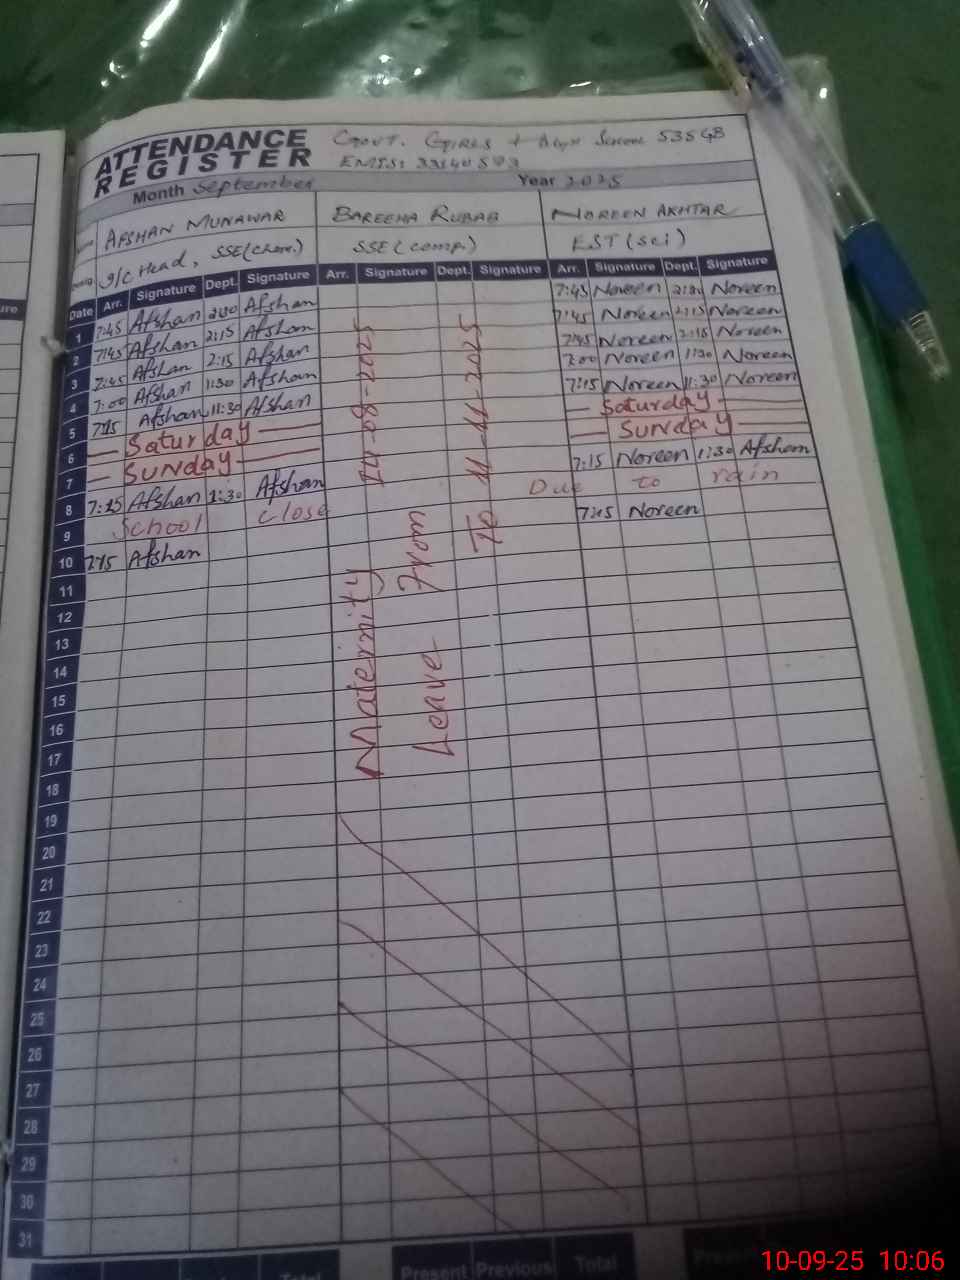 ATTENDANCE REGISTER
GOVT. GIRLS High School 535 GB
EMIS:
Month September Year 2025
AFSHAN MUNAWAR BAREEHA RUBAB NOREEN AKHTAR
I/C Head, SSE(Chem.) SSE(comp.) EST(sci)
Date Arr. Signature Dept. Signature Arr. Signature Dept. Signature Arr. Signature Dept. Signature
1 7:45 Afshan 2:00 Afshan 7:45 Noreen Noreen
2 7:45 Afshan 2:15 Afshan 7:45 Noreen 2:15 Noreen
3 7:45 Afshan 2:15 Afshan 7:45 Noreen 2:15 Noreen
4 7:00 Afshan 1:30 Afshan 7:00 Noreen 1:30 Noreen
5 7:15 Afshan 11:30 Afshan 7:15 Noreen 11:30 Noreen
6 Saturday Saturday
7 Sunday Sunday
8 7:15 Afshan 1:30 Afshan 7:15 Noreen 1:30 Afshan
9 School close Due to rain
10 7:15 Afshan 7:15 Noreen
Maternity
Leave From
-08-2025
To 11-11-2025
11
12
13
14
15
16
17
18
19
20
21
22
23
24
25
26
27
28
29
30
31
Total Present Previous Total
10-09-25 10:06